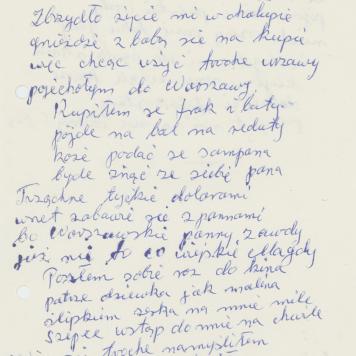 Zbrzydło życie mi w chałupie
gnieździć z babą sie na kupie
więc chcąc użyć troche wrzawy
pojechołym do Warszawy
Kupiłem se frak i buty
pójde na bal na reduty
każe podać se sampana
byde znać ze siebie pana
Trząchne tyćkie dolarami
wnet zabawie sie z pannami
bo Warszawskie panny zawdy
już nie to co wiejskie Magdy
Poszłem sobie roz do kina
patrze dziewka jak malina
slipkiem zerka na mnie mile
szepce wstąp do mnie na chwile
troche namyśliłem